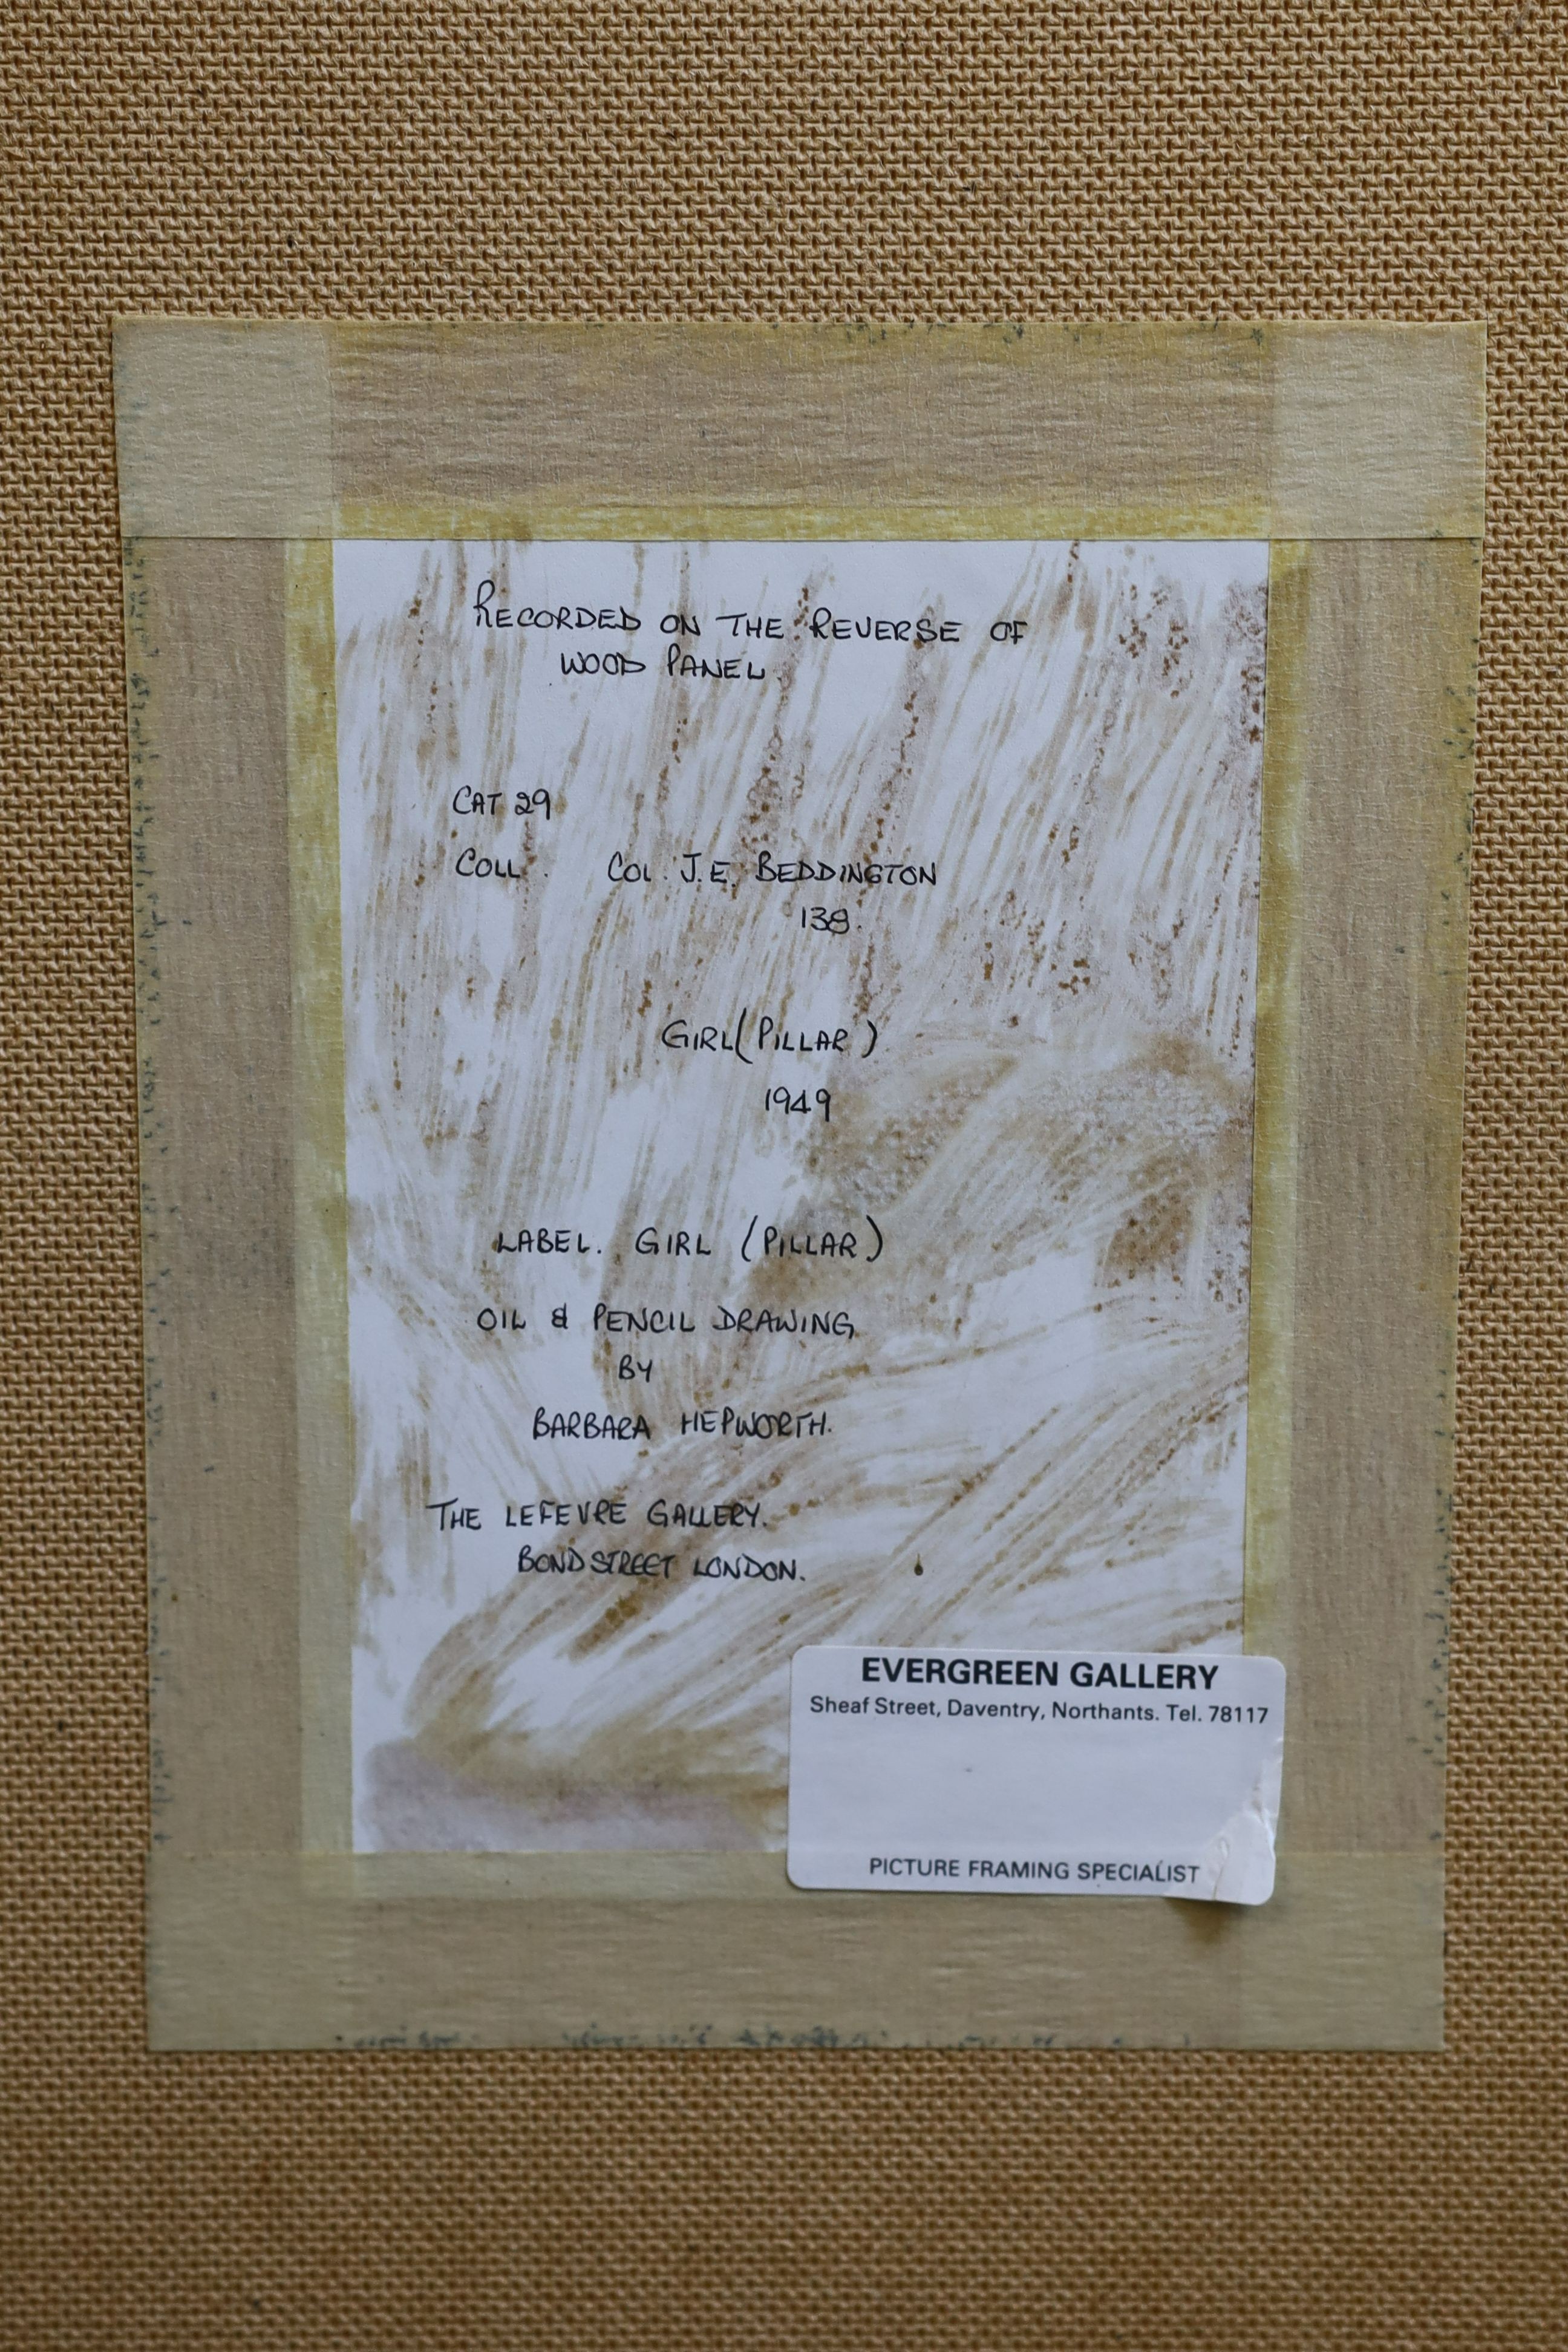 RECORDED ON THE REVERSE OF
WOOD PANEL.
CAT 29
COLL. COL. J.E. BEDDINGTON
138.
GIRL (PILLAR)
1949
LABEL. GIRL (PILLAR)
OIL & PENCIL DRAWING
BY
BARBARA HEPWORTH.
THE LEFEVRE GALLERY.
BOND STREET LONDON.
EVERGREEN GALLERY
Sheaf Street, Daventry, Northants. Tel. 78117
PICTURE FRAMING SPECIALIST